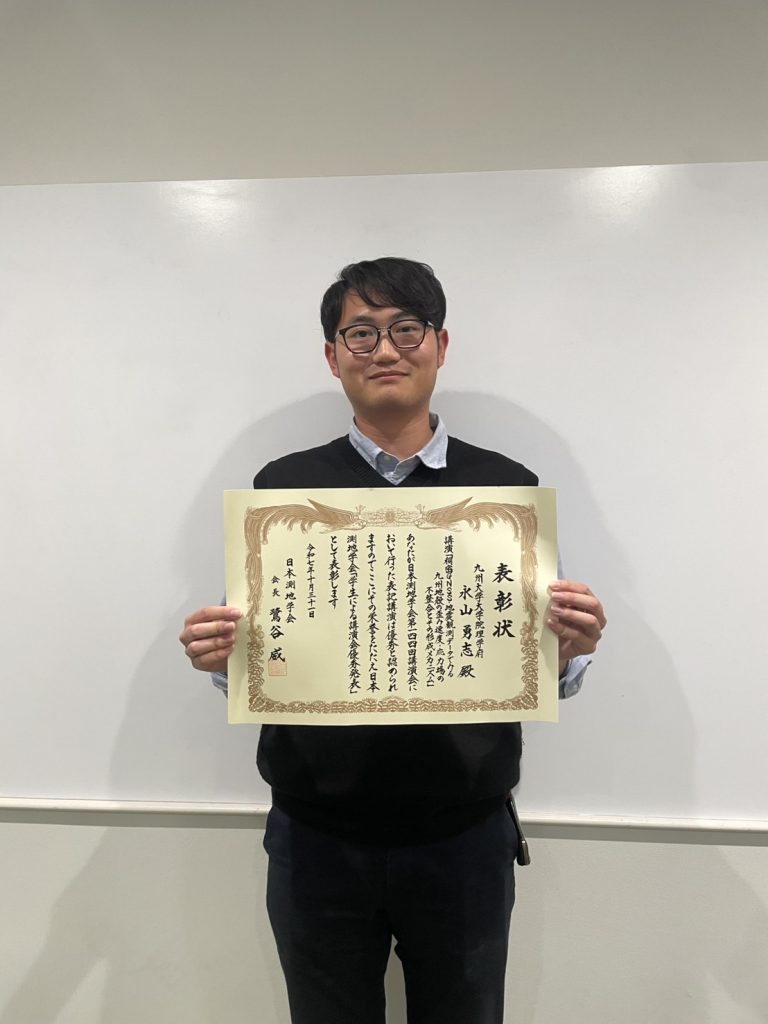 表彰状
九州大学大学院理学府
永山勇志 殿
講演「稠密GNSS・地震観測データでみる
九州地殻の歪み速度・応力場の
不整合とその形成メカニズム」
あなたが日本測地学会第一四四回講演会に
おいて行った表記講演は優秀と認められ
ますのでここにその栄誉をたたえ日本
測地学会「学生による講演会優秀発表」
として表彰します
令和七年十月三十一日
日本測地学会
会長 鷺谷 威